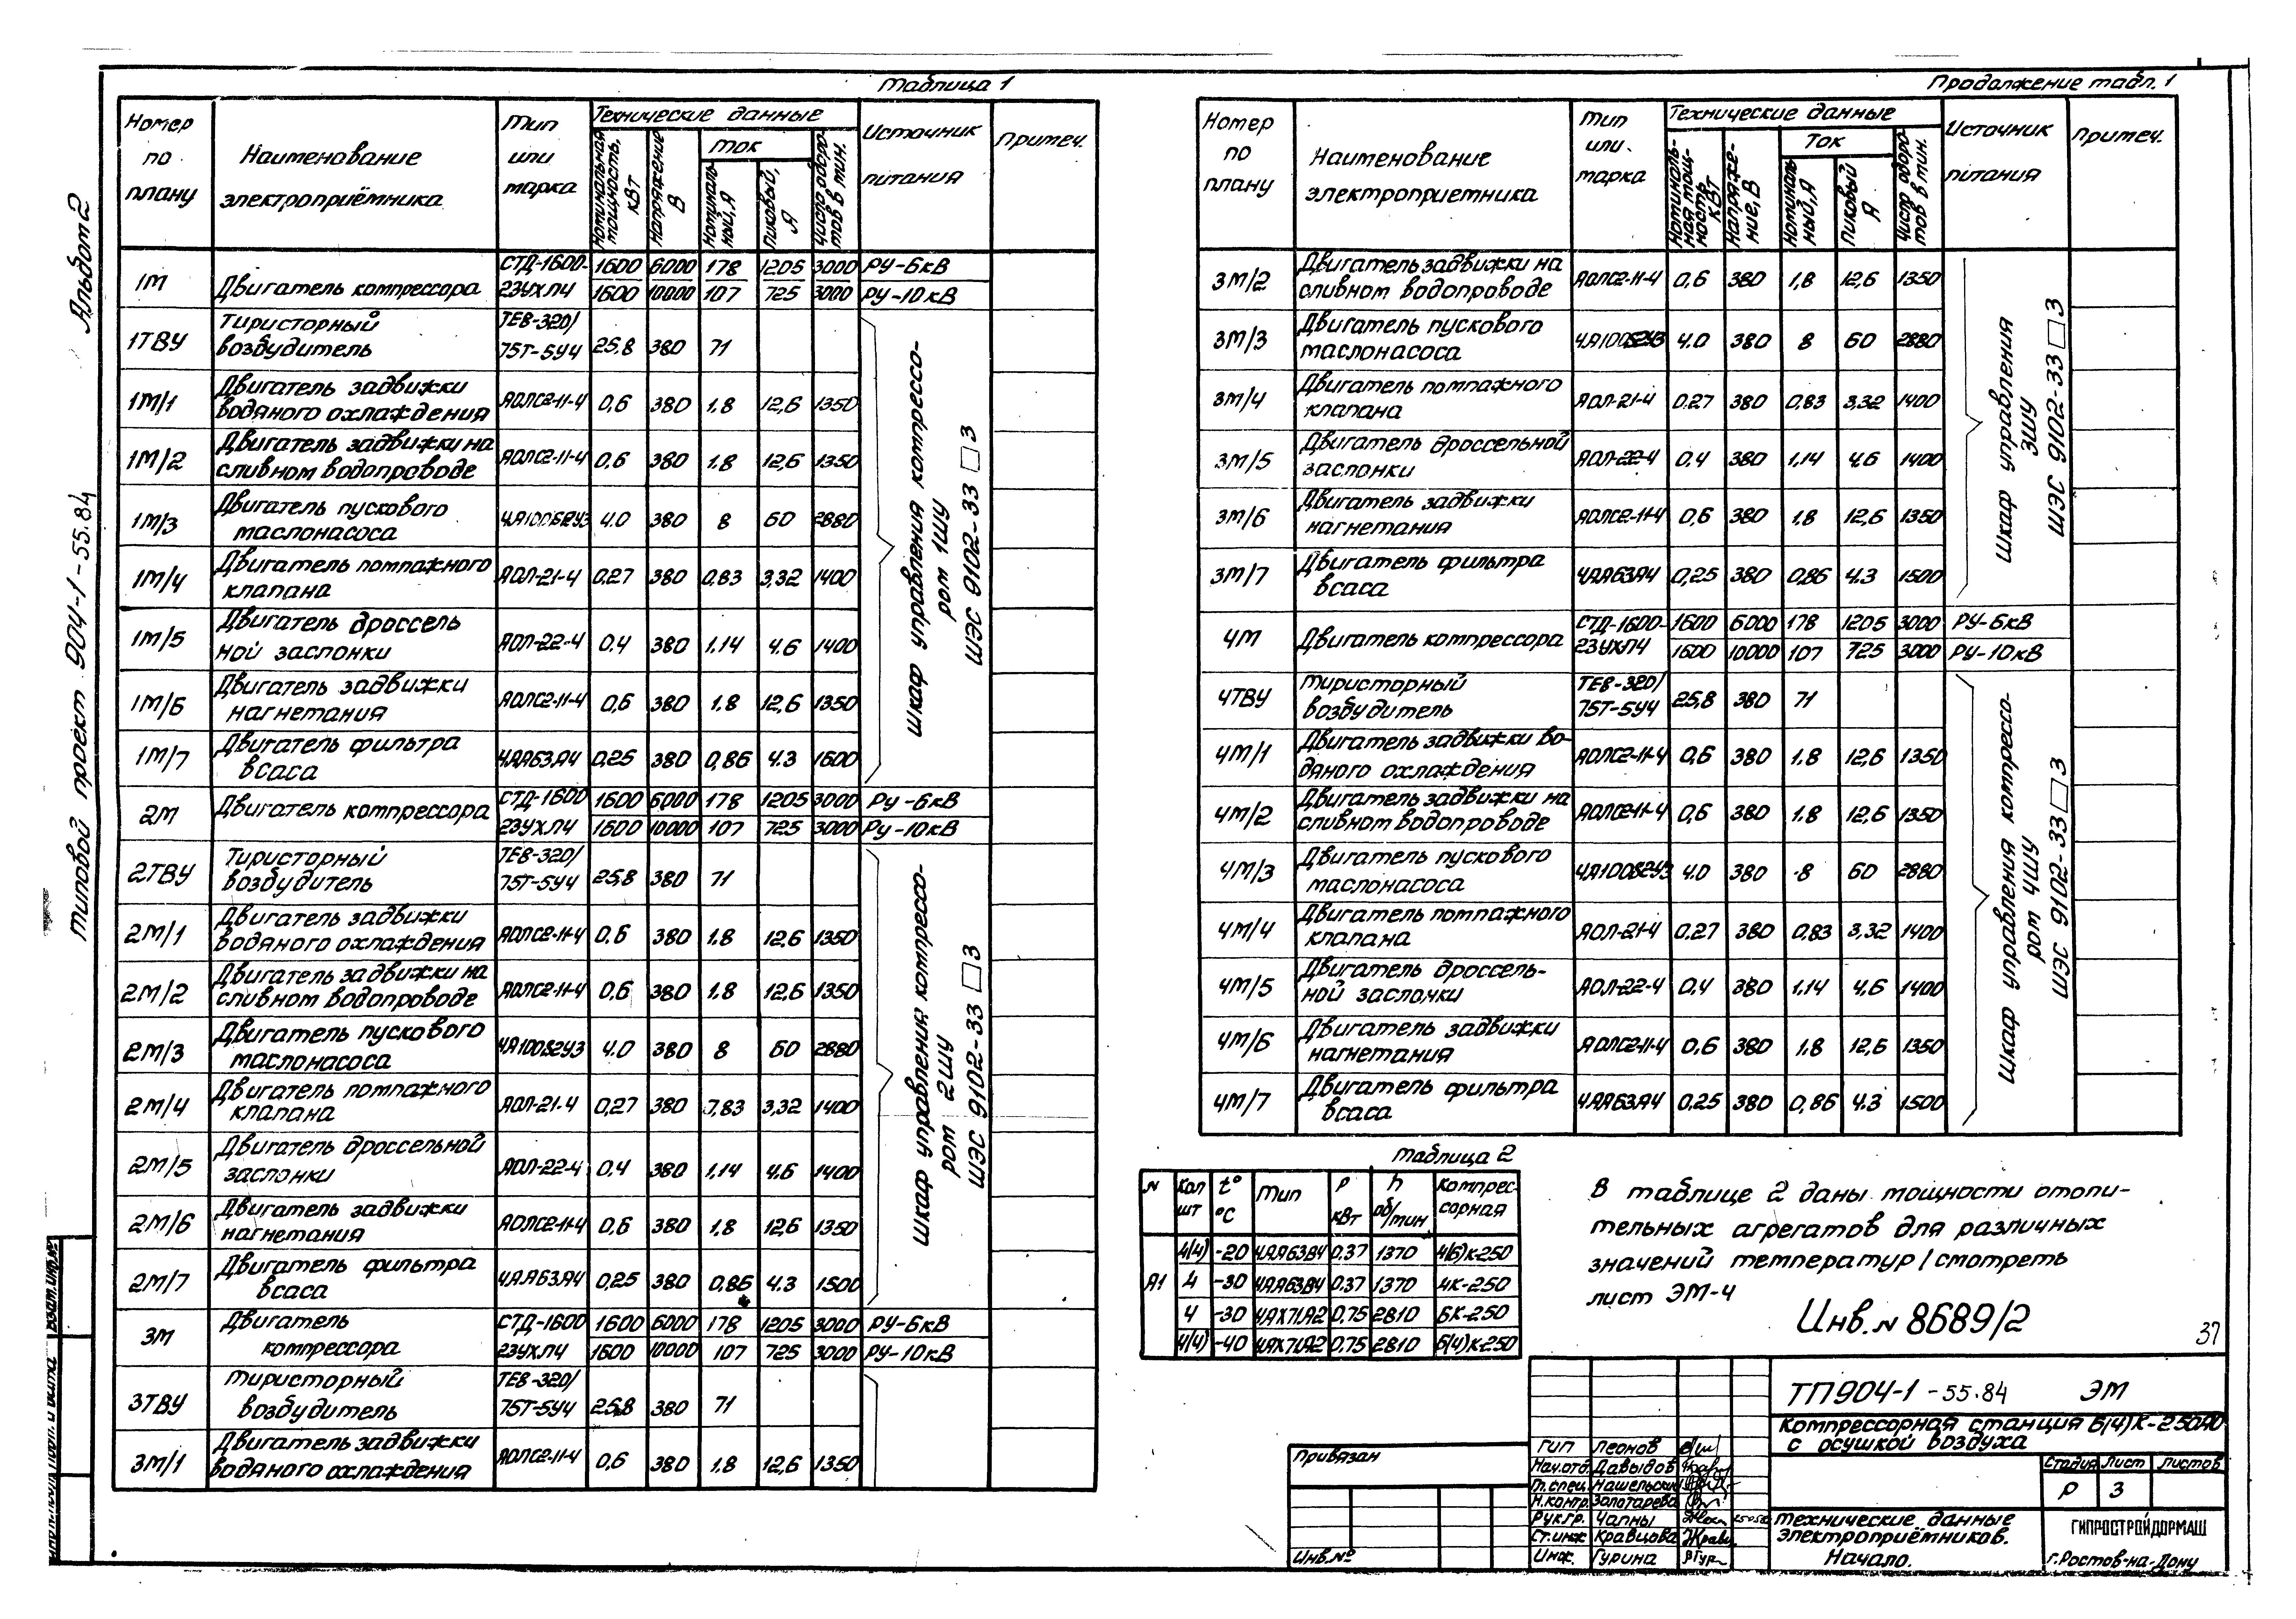 Таблица 1
Номер по плану | Наименование электроприёмника | Тип или марка | Технические данные | Источник питания | Примеч.
Номинальная мощность, кВт | Напряжение В | Ток | Число оборотов в мин.
Номинальный, А | Пиковый, А
1М | Двигатель компрессора | СТД-1600-23УХЛ4 | 1600 | 6000 | 178 | 1205 | 3000 | РУ-6кВ
1600 | 10000 | 107 | 725 | 3000 | РУ-10кВ
1ТВУ | Тиристорный возбудитель | ТЕ8-320/75Т-5У4 | 25,8 | 380 | 71
1М/1 | Двигатель задвижки водяного охлаждения | АОЛС2-11-4 | 0,6 | 380 | 1.8 | 12,6 | 1350
1М/2 | Двигатель задвижки на сливном водопроводе | АОЛС2-11-4 | 0,6 | 380 | 1.8 | 12,6 | 1350
1М/3 | Двигатель пускового маслонасоса | 4А100S2У3 | 4.0 | 380 | 8 | 60 | 2880
1М/4 | Двигатель помпажного клапана | АОЛ-21-4 | 0.27 | 380 | 0,83 | 3,32 | 1400
1М/5 | Двигатель дроссель ной заслонки | АОЛ-22-4 | 0.4 | 380 | 1.14 | 4.6 | 1400
1М/6 | Двигатель задвижки нагнетания | АОЛС2-11-4 | 0,6 | 380 | 1.8 | 12,6 | 1350
1М/7 | Двигатель фильтра всаса | 4АА63А4 | 0,25 | 380 | 0,86 | 4.3 | 1500
Шкаф управления компрессором 1ШУ
ШЭС 9102-33 □ 3
2М | Двигатель компрессора | СТД-1600 23УХЛ4 | 1600 | 6000 | 178 | 1205 | 3000 | РУ-6кВ
1600 | 10000 | 107 | 725 | 3000 | РУ-10кВ
2ТВУ | Тиристорный возбудитель | ТЕ8-320/75Т-5У4 | 25,8 | 380 | 71
2М/1 | Двигатель задвижки водяного охлаждения | АОЛС2-11-4 | 0.6 | 380 | 1.8 | 12,6 | 1350
2М/2 | Двигатель задвижки на сливном водопроводе | АОЛС2-11-4 | 0,6 | 380 | 1.8 | 12,6 | 1350
2М/3 | Двигатель пускового маслонасоса | 4А100S2У3 | 4.0 | 380 | 8 | 60 | 2880
2М/4 | Двигатель помпажного клапана | АОЛ-21-4 | 0,27 | 380 | 0,83 | 3,32 | 1400
2М/5 | Двигатель дроссельной заслонки | АОЛ-22-4 | 0.4 | 380 | 1,14 | 4.6 | 1400
2М/6 | Двигатель задвижки нагнетания | АОЛС2-11-4 | 0,6 | 380 | 1.8 | 12,6 | 1350
2М/7 | Двигатель фильтра всаса | 4АА63А4 | 0,25 | 380 | 0,86 | 4.3 | 1500
Шкаф управления компрессором 2ШУ
ШЭС 9102-33 □ 3
3М | Двигатель компрессора | СТД-1600 23УХЛ4 | 1600 | 6000 | 178 | 1205 | 3000 | РУ-6кВ
1600 | 10000 | 107 | 725 | 3000 | РУ-10кВ
3ТВУ | Тиристорный возбудитель | ТЕ8-320/75Т-5У4 | 25,8 | 380 | 71
3М/1 | Двигатель задвижки водяного охлаждения | АОЛС2-11-4 | 0,6 | 380 | 1.8 | 12,6 | 1350
Продолжение табл. 1
Номер по плану | Наименование электроприемника | Тип или марка | Технические данные | Источник питания | Примеч.
Номинальная мощность кВт | Напряжение, В | Ток | Число оборотов в мин.
Номинальный, А | Пиковый А
3М/2 | Двигатель задвижки на сливном водопроводе | АОЛС2-11-4 | 0,6 | 380 | 1,8 | 12,6 | 1350
3М/3 | Двигатель пускового маслонасоса | 4А100S2У3 | 4.0 | 380 | 8 | 60 | 2880
3М/4 | Двигатель помпажного клапана | АОЛ-21-4 | 0.27 | 380 | 0,83 | 3,32 | 1400
3М/5 | Двигатель дроссельной заслонки | АОЛ-22-4 | 0.4 | 380 | 1,14 | 4.6 | 1400
3М/6 | Двигатель задвижки нагнетания | АОЛС2-11-4 | 0,6 | 380 | 1.8 | 12,6 | 1350
3М/7 | Двигатель фильтра всаса | 4АА63А4 | 0,25 | 380 | 0,86 | 4.3 | 1500
Шкаф управления
3ШУ
ШЭС 9102-33 □ 3
4М | Двигатель компрессора | СТД-1600-23УХЛ4 | 1600 | 6000 | 178 | 1205 | 3000 | РУ-6кВ
1600 | 10000 | 107 | 725 | 3000 | РУ-10кВ
4ТВУ | Тиристорный возбудитель | ТЕ8-320/75Т-5У4 | 25,8 | 380 | 71
4М/1 | Двигатель задвижки водяного охлаждения | АОЛС2-11-4 | 0,6 | 380 | 1.8 | 12,6 | 1350
4М/2 | Двигатель задвижки на сливном водопроводе | АОЛС2-11-4 | 0,6 | 380 | 1.8 | 12,6 | 1350
4М/3 | Двигатель пускового маслонасоса | 4А100S2У3 | 4.0 | 380 | 8 | 60 | 2880
4М/4 | Двигатель помпажного клапана | АОЛ-21-4 | 0.27 | 380 | 0,83 | 3,32 | 1400
4М/5 | Двигатель дроссельной заслонки | АОЛ-22-4 | 0,4 | 380 | 1.14 | 4,6 | 1400
4М/6 | Двигатель задвижки нагнетания | АОЛС2-11-4 | 0,6 | 380 | 1.8 | 12,6 | 1350
4М/7 | Двигатель фильтра всаса | 4АА63А4 | 0.25 | 380 | 0,86 | 4.3 | 1500
Шкаф управления компрессором 4ШУ
ШЭС 9102-33 □ 3
Таблица 2
N | Кол шт | t° °С | Тип | Р кВт | n об/мин | Компрессорная
А1 | 4(4) | -20 | 4АА63В4 | 0.37 | 1370 | 4(6)К-250
4 | -30 | 4АА63В4 | 0.37 | 1370 | 4К-250
4 | -30 | 4АХ71А2 | 0,75 | 2810 | 6К-250
4(4) | -40 | 4АХ71А2 | 0,75 | 2810 | 6(4)К-250
В таблице 2 даны мощности отопи-
тельных агрегатов для различных
значений температур/смотреть
лист ЭМ-4
Инв. N 8689/2
37
ТП904-1-55.84 ЭМ
Компрессорная станция 6(4)К-250А0
с осушкой воздуха
Стадия | Лист | Листов
Р | 3
Технические данные
электроприёмников.
Начало.
ГИПРОСТРОЙДОРМАШ
г.Ростов-на-Дону
ГИП Леонов
Нач.отд. Давыдов
Гл.спец. Нашельский
Н.контр. Золотарева
Рук.гр. Чапны
Ст.инж. Кравцова
Инж. Гурина
Привязан
Инв.№
Типовой проект 904-1-55.84 Альбом 2
Взам.инв.№